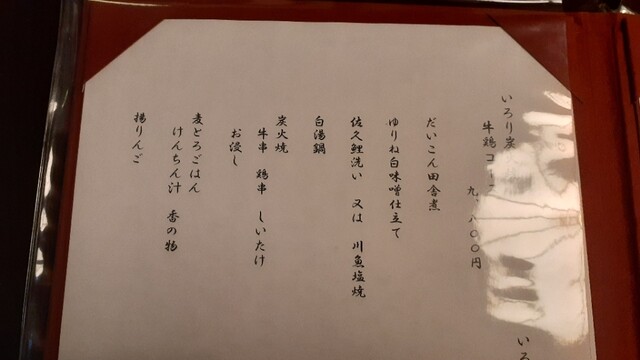 いろり炭
牛鶏コース
九、八〇〇円
だいこん田舎煮
ゆりね白味噌仕立て
佐久鯉洗い 又は 川魚塩焼
白湯鍋
炭火焼
牛串 鶏串 しいたけ
お浸し
麦とろごはん
けんちん汁 香の物
揚りんご
いろ